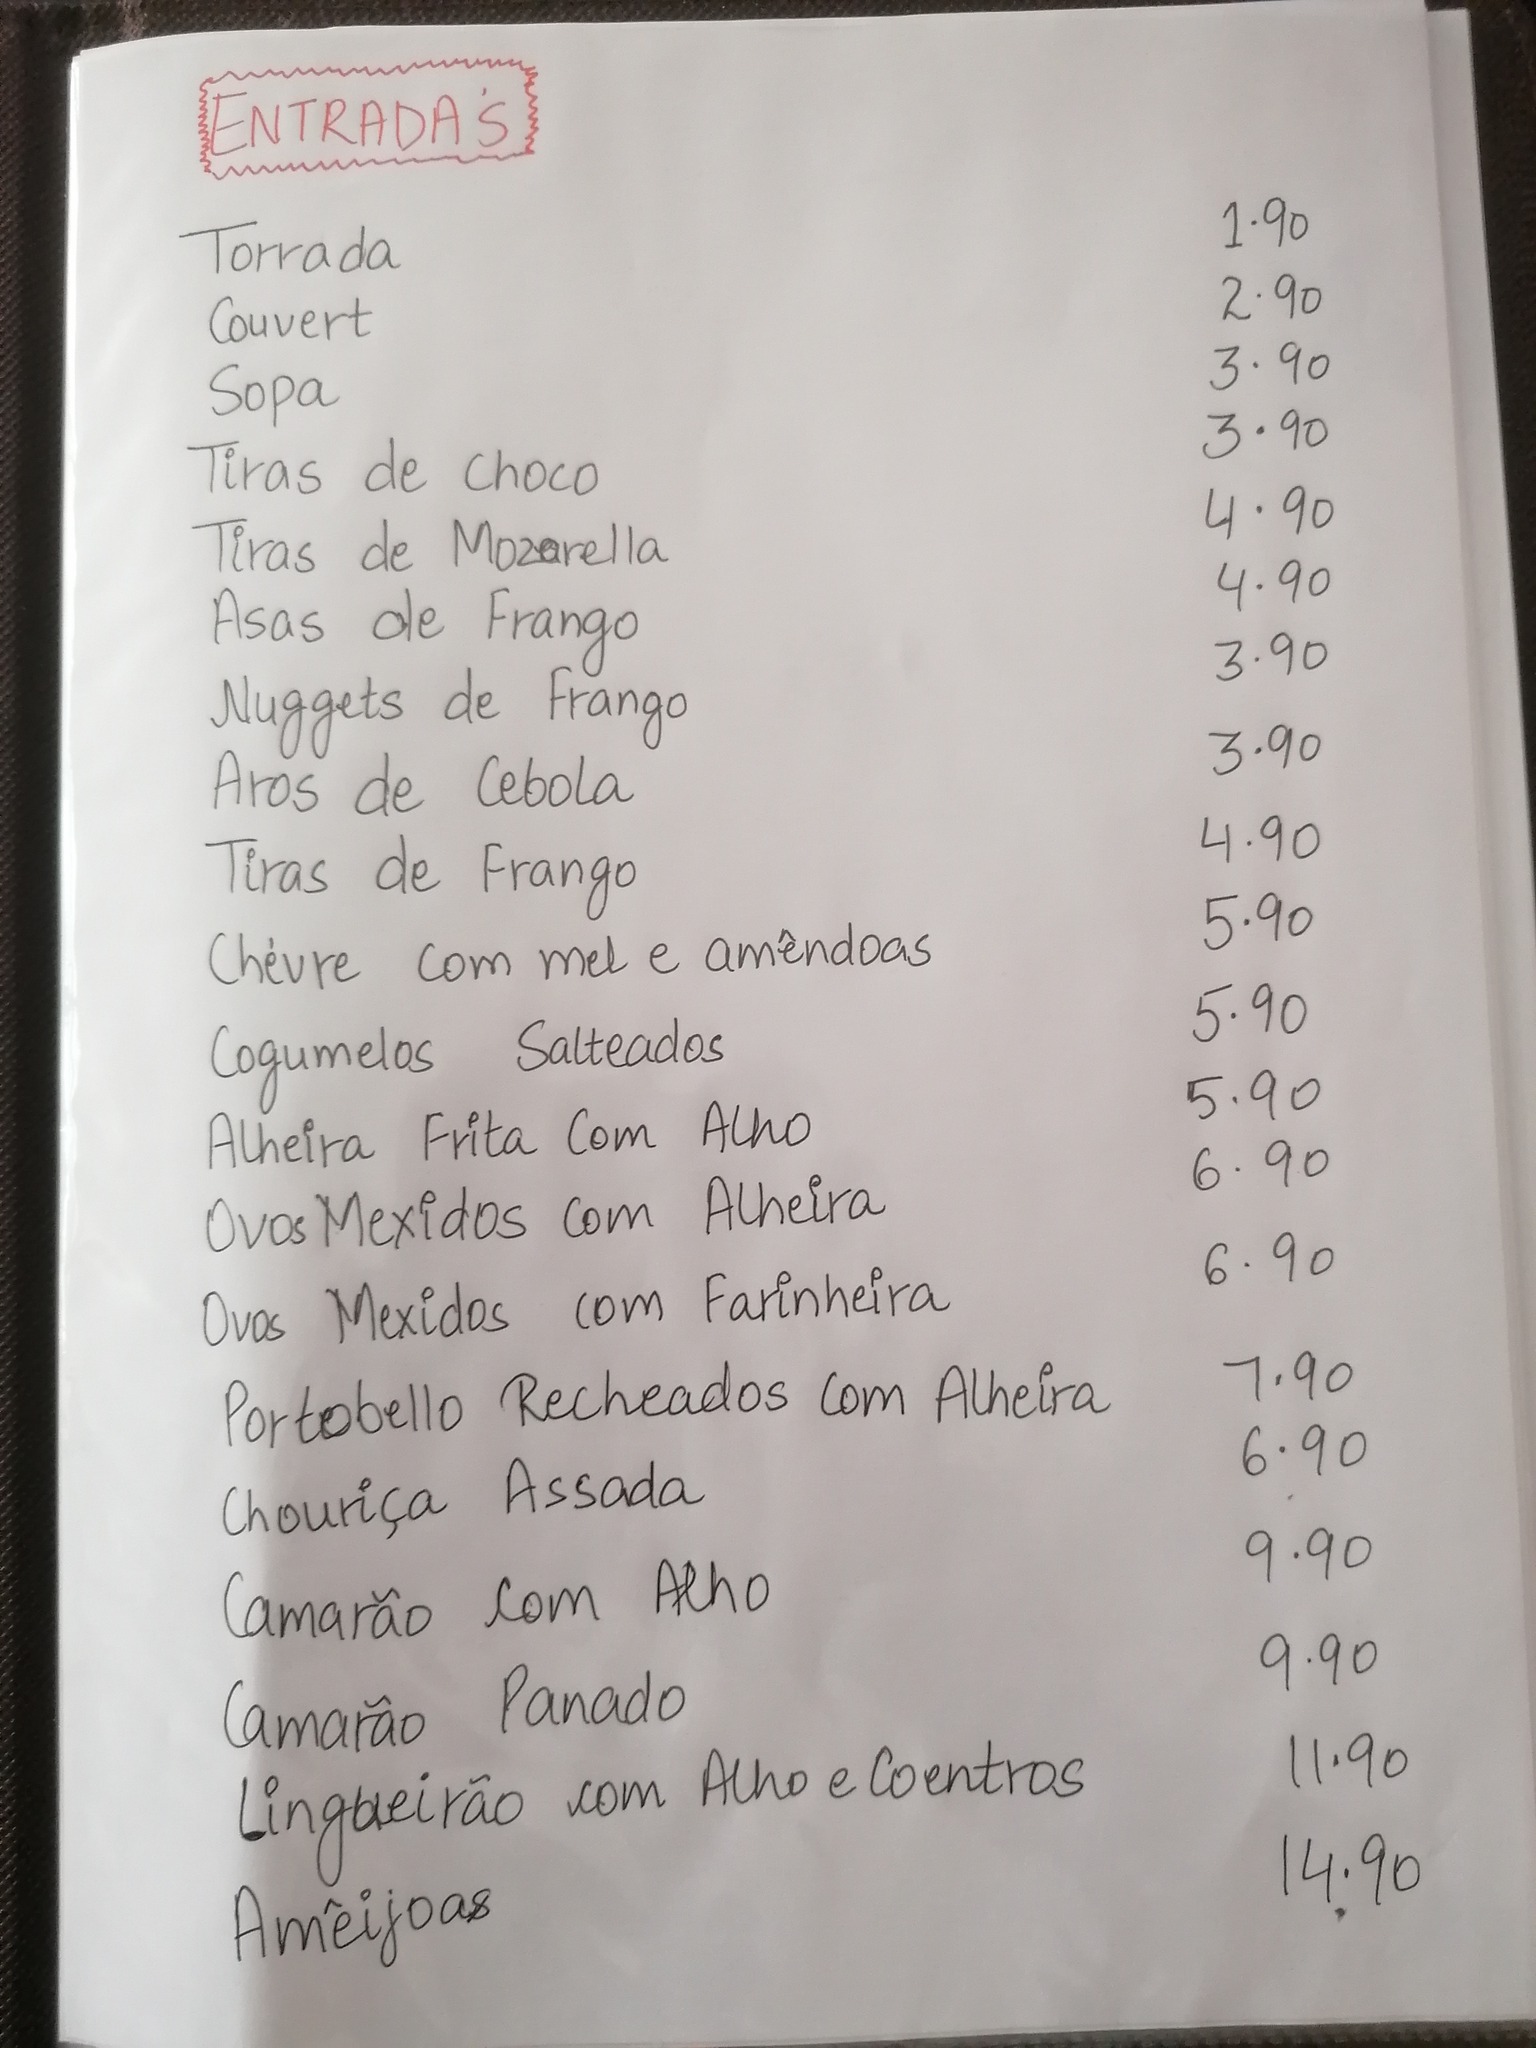 ENTRADA'S
Torrada 1.90
Couvert 2.90
Sopa 3.90
Tiras de choco 3.90
Tiras de Mozarella 4.90
Asas de Frango 4.90
Nuggets de Frango 3.90
Aros de Cebola 3.90
Tiras de Frango 4.90
Chévre com mel e amêndoas 5.90
Cogumelos Salteados 5.90
Alheira Frita Com Alho 5.90
Ovos Mexidos com Alheira 6.90
Ovos Mexidos com Farinheira 6.90
Portobello Recheados com Alheira 7.90
Chouriça Assada 6.90
Camarão com Alho 9.90
Camarão Panado 9.90
Lingueirão com Alho e Coentros 11.90
Amêijoas 14.90